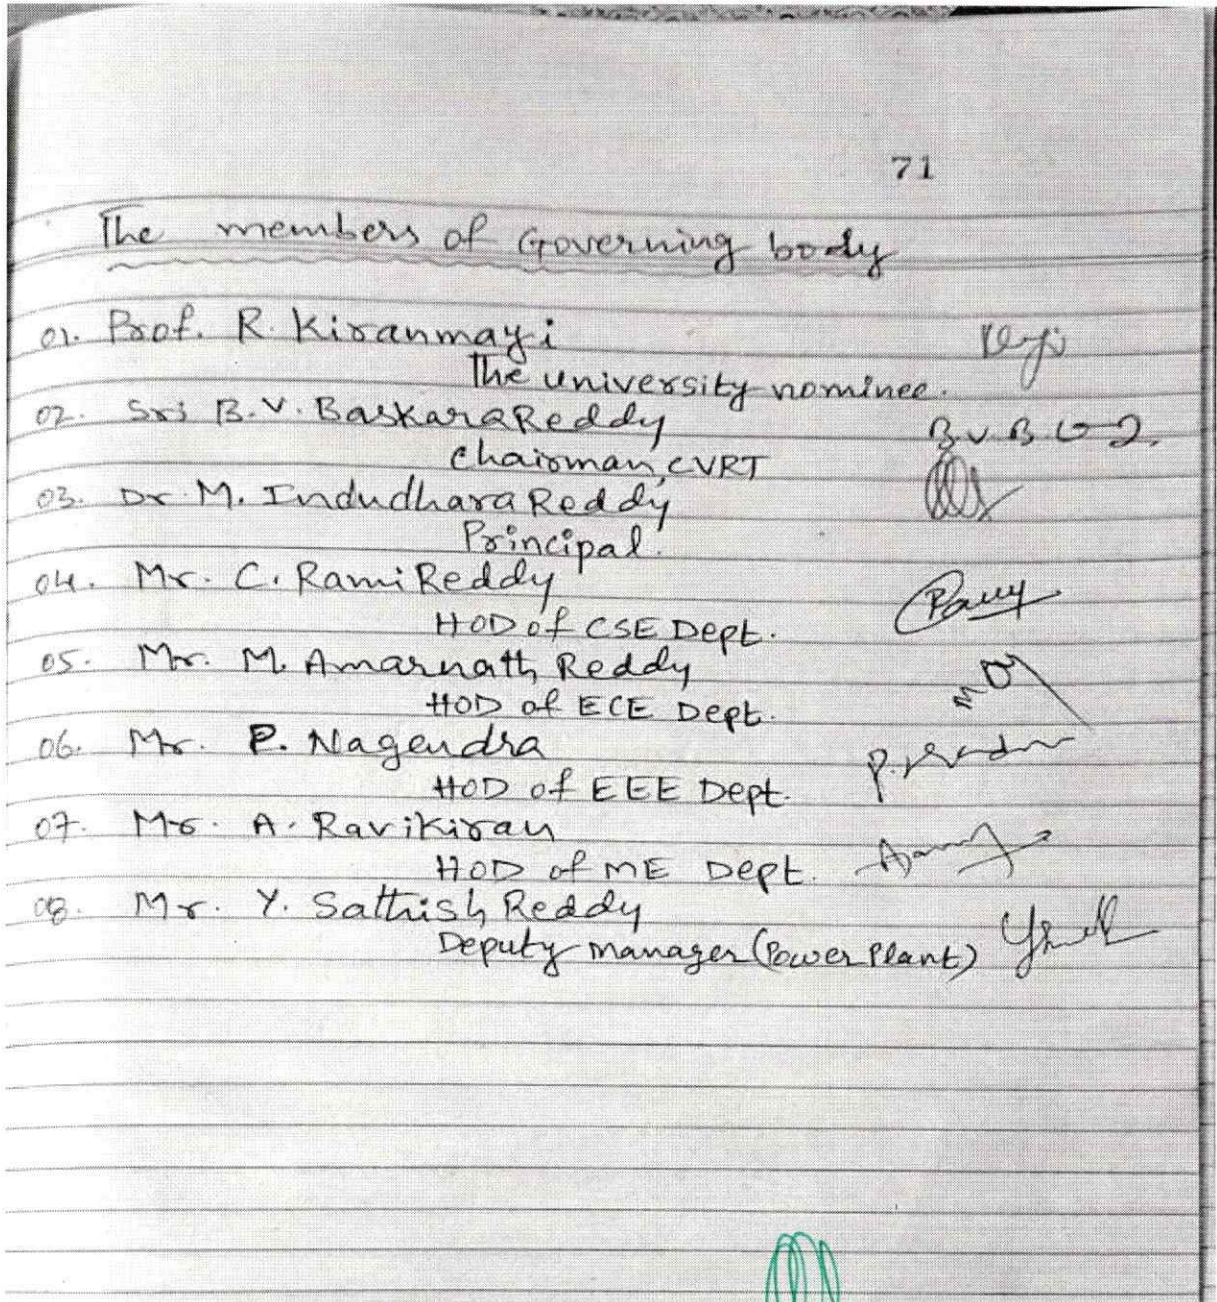 71
The members of Governing body
01. Prof. R. Kiranmayi
The university nominee.
02. Sri B.V. BaskaraReddy
B.V.B
Chairman, CVRT
03. Dr. M. IndudharaReddy
Principal.
04. Mr. C. RamiReddy
HOD of CSE Dept.
05. Mr. M. Amarnath Reddy
HOD of ECE Dept.
06. Mr. P. Nagendra
HOD of EEE Dept.
07. Mr. A. Ravikiran
HOD of ME Dept.
08. Mr. Y. Sathish Reddy
Deputy manager (Power Plant)